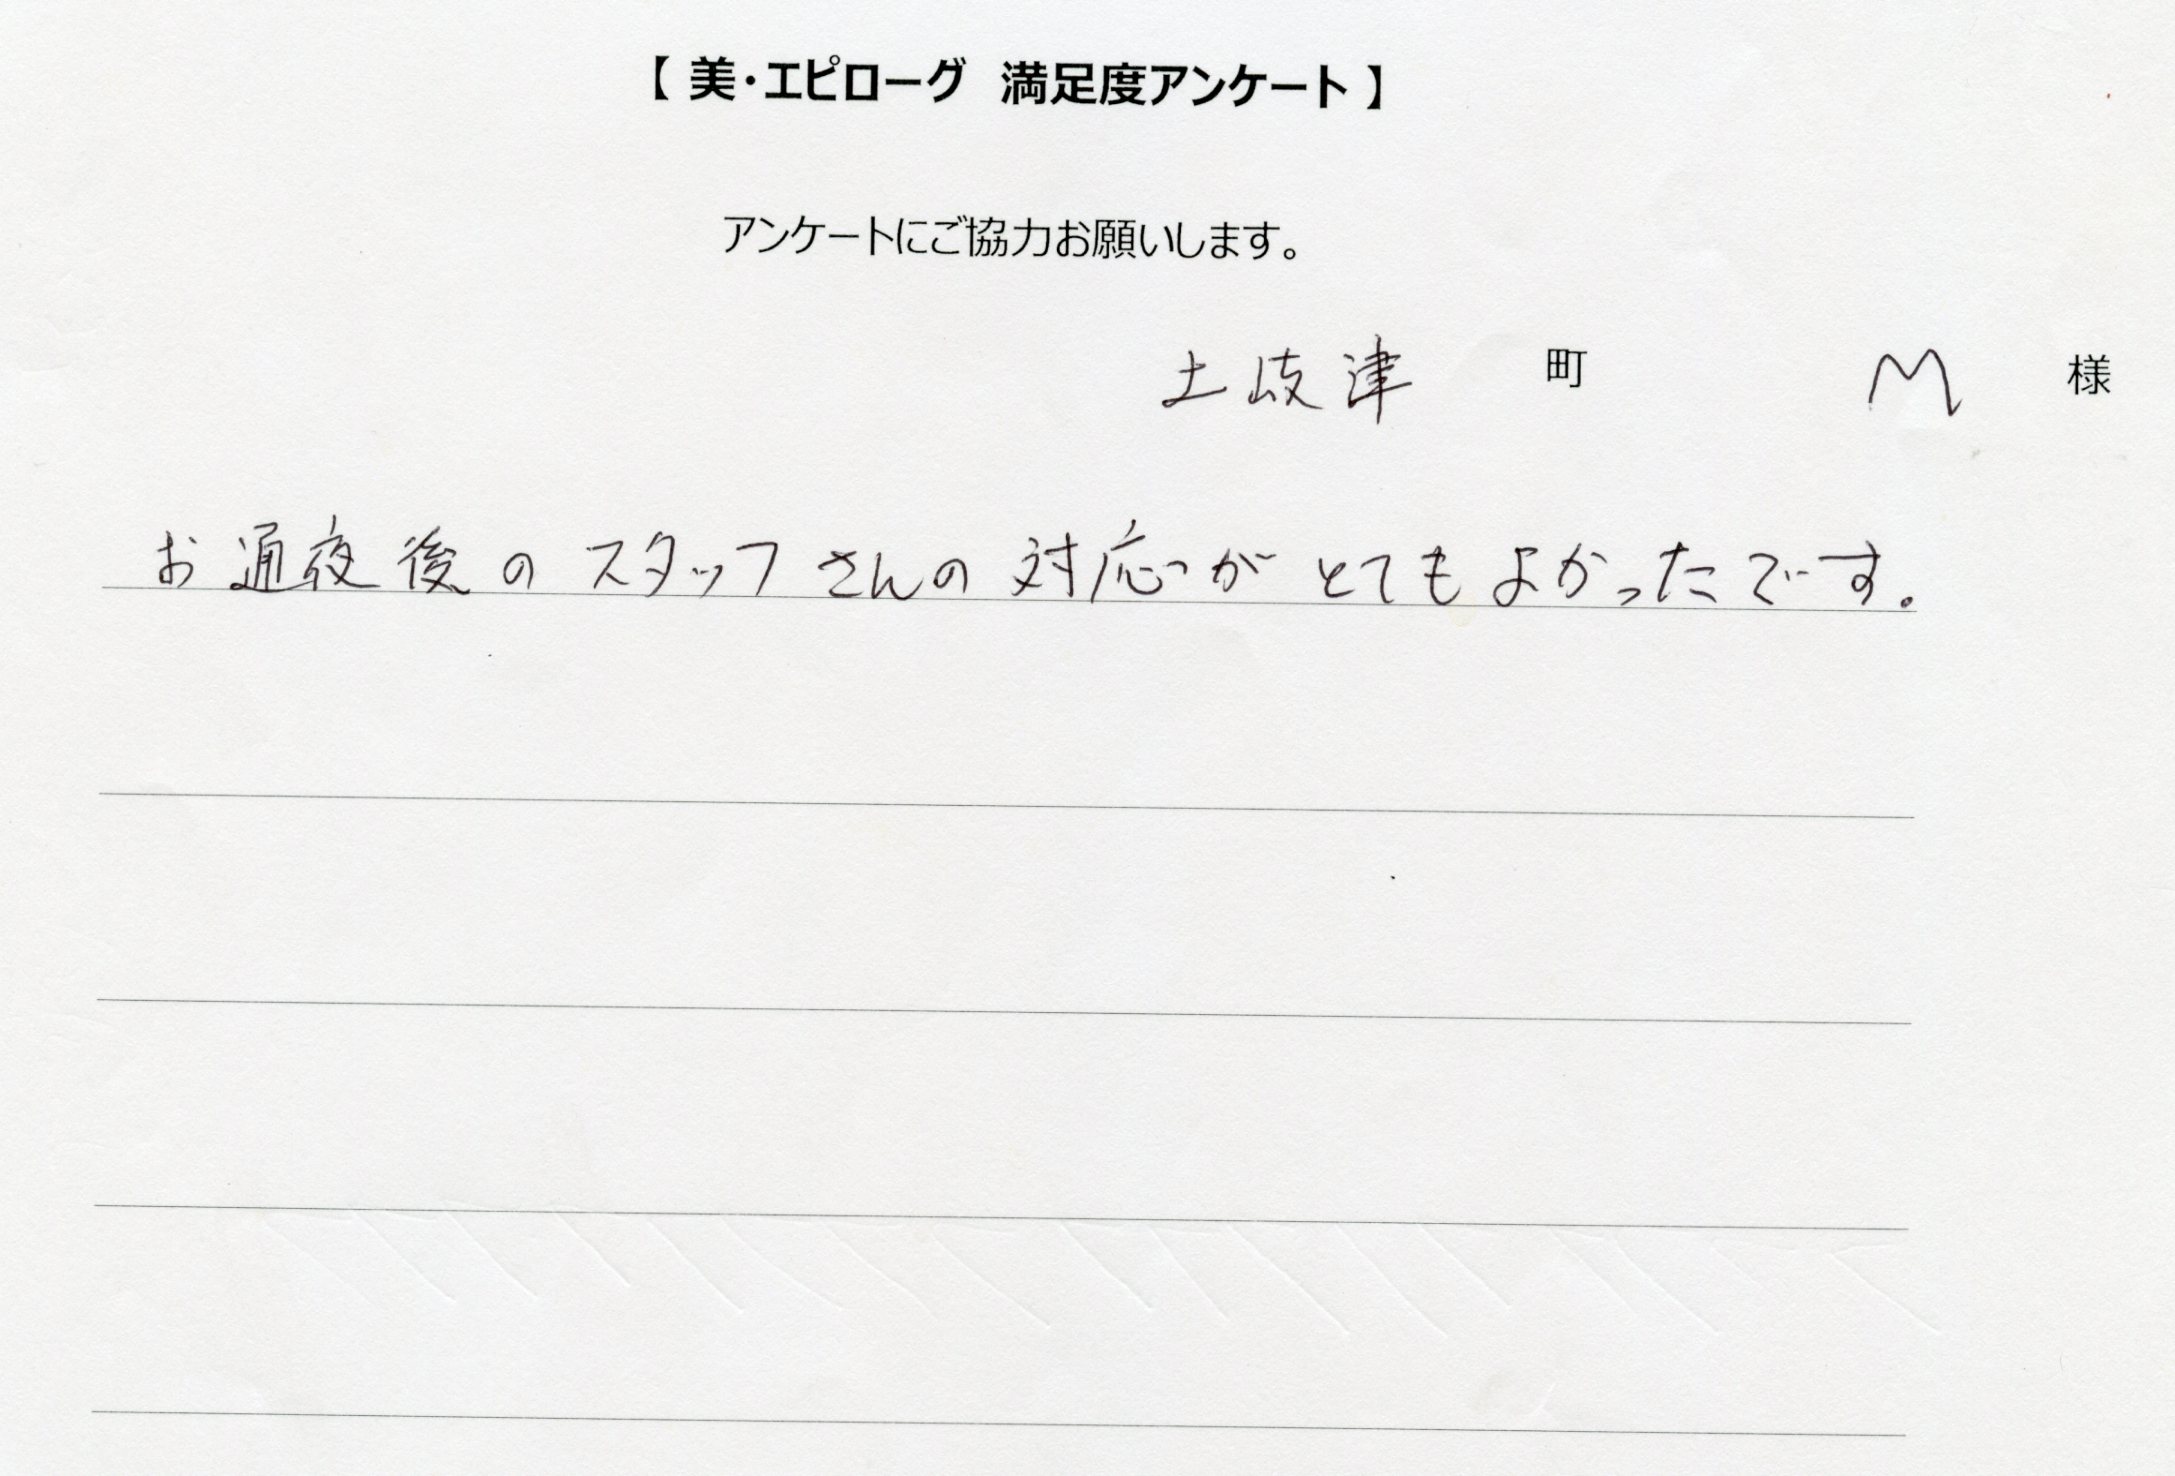 【 美・エピローグ 満足度アンケート 】
アンケートにご協力お願いします。
土岐津 町 M 様
お通夜後のスタッフさんの対応がとてもよかったです。